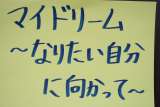 マイドリーム
～なりたい自分
に向かって～